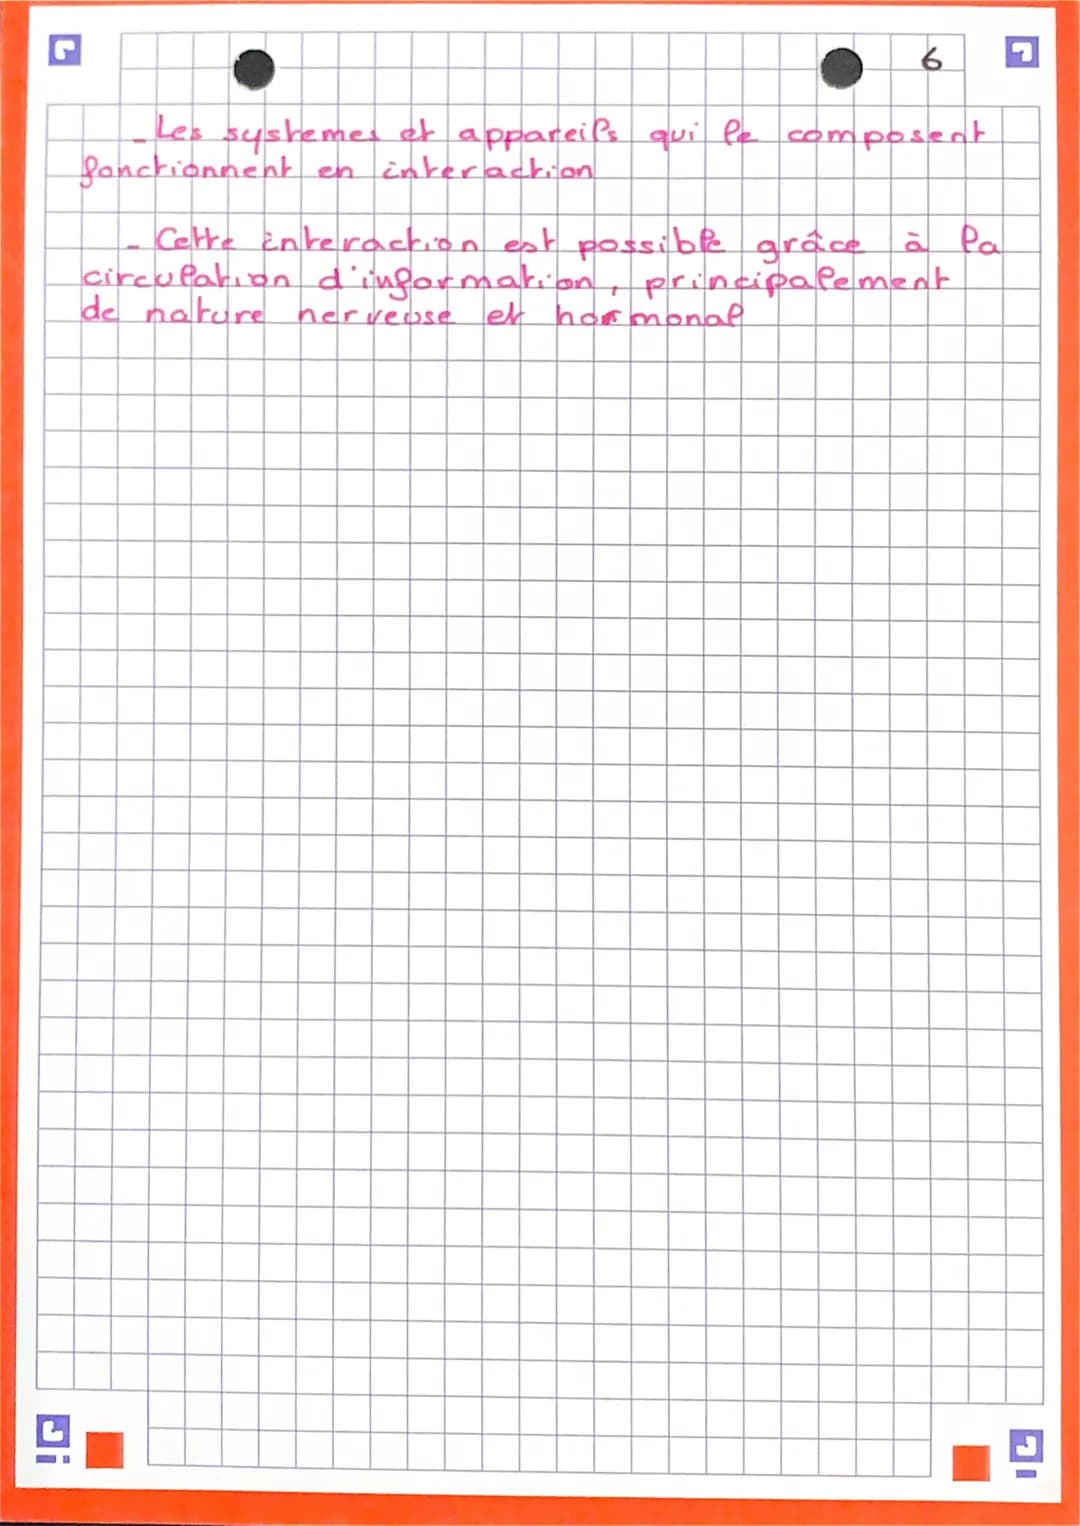 6
- Les systemes et appareils qui le composent
fonctionnent en interaction
- Cette interaction est possible grâce à la
circulation d'information, principalement
de nature nerveuse et hormonal